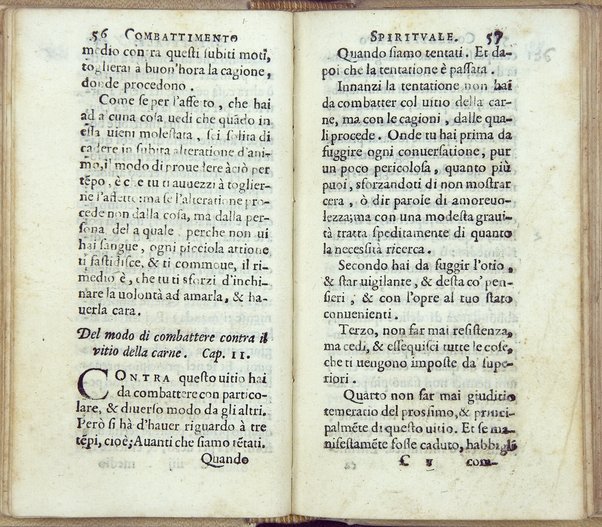 56 COMBATTIMENTO
medio contra questi subiti moti,
toglierai à buon'hora la cagione,
donde procedono.
Come se per l'affeto, che hai
ad alcuna cosa uedi che quãdo in
essa uieni molestata, sei solita di
cadere in subita alteratione d'ani
mo, il modo di prouedere àciò per
tẽpo, è che tu ti auuezzi à toglier-
ne l'affetto: ma se l'alteratione pro
cede non dalla cosa, ma dalla per-
sona del a quale, perche non ui
hai sangue, ogni picciola attione
ti fastidisce, & ti commoue, il ri-
medio è, che tu ti sforzi d'inchi-
nare la uolontà ad amarla, & ha-
uerla cara.
Del modo di combattere contra il
vitio della carne. Cap. 11.
CONTRA questo uitio hai
da combattere con partico-
lare, & diuerso modo da gli altri.
Però si hà d'hauer riguardo à tre
tẽpi, cioè; Auanti che siamo tẽtati.
Quando
SPIRITVALE. 57
Quando siamo tentati. Et da-
poi che la tentatione è passata.
Innanzi la tentatione non hai
da combatter col uitio della car-
ne, ma con le cagioni, dalle qua-
li procede. Onde tu hai prima da
fuggire ogni conuersatione, pur
un poco pericolosa, quanto più
puoi, sforzandoti di non mostrar
cera, ò dir parole di amoreuo-
lezza; ma con una modesta graui-
tà tratta speditamente di quanto
la necessità ricerca.
Secondo hai da fuggir l'otio,
& star uigilante, & desta co' pen-
sieri, & con l'opre al tuo stato
conuenienti.
Terzo, non far mai resistenza,
ma cedi, & essequisci tutte le cose,
che ti uengono imposte da supe-
riori.
Quarto non far mai giuditio
temeratio del prossimo, & princi-
palmẽte di questo uitio. Et se ma-
nifestamẽte fosse caduto, habbigli
C v com-